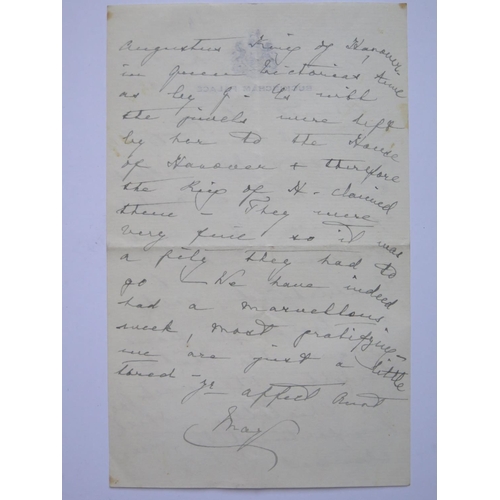 Augustus King of Hanover
in Queen Victorias time
as by Q— Cs will
the jewels were left
by her to the House
of Hanover & therefore
the King of H— claimed
them — They were
very fine so it was
a pity they had to
go — We have indeed
had a marvellous
week, most gratifying—
we are just a little
tired — yr affect Aunt
May